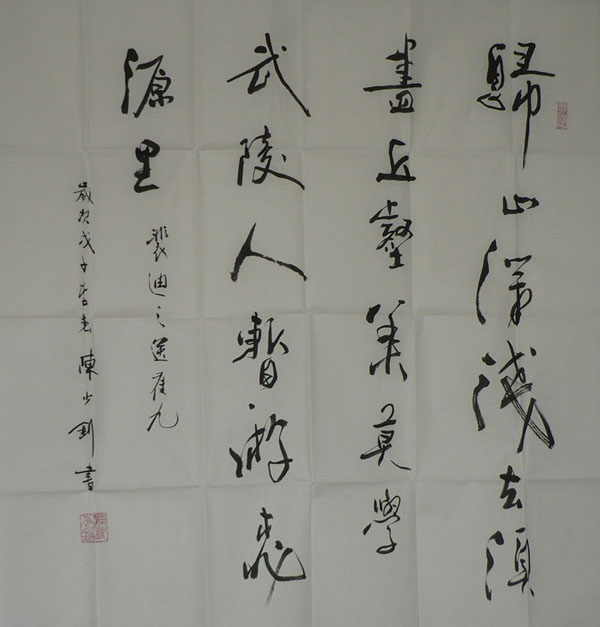 歸山深淺去須
盡丘壑美莫學
武陵人暫游桃
源里
裴迪之送崔九
歲次戊子陳少書